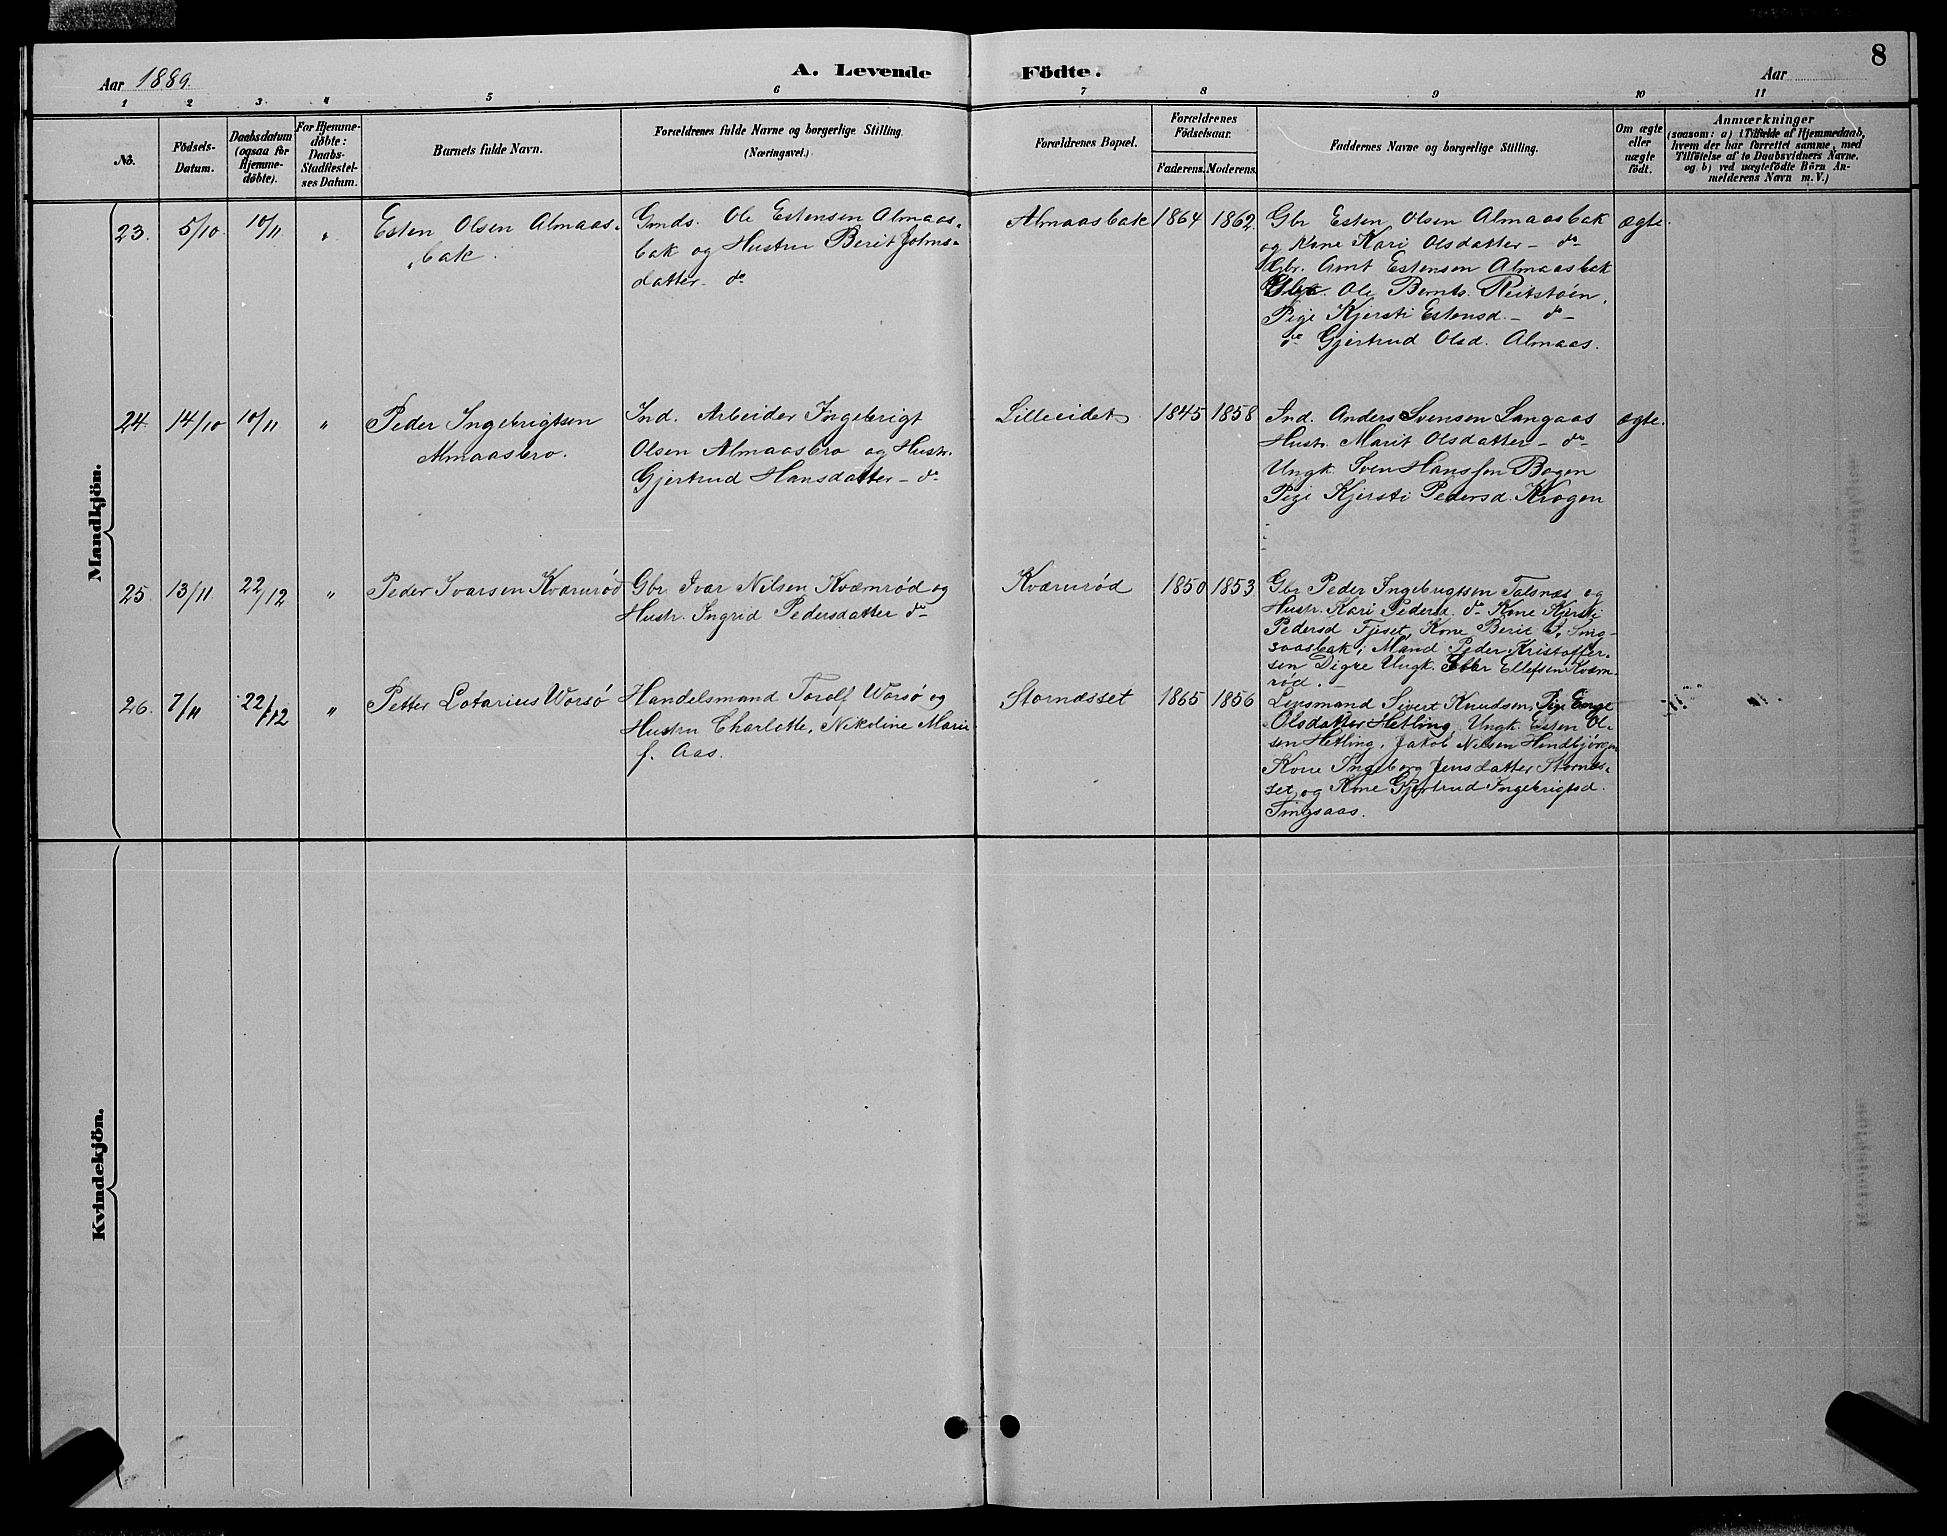 8
Aar 1889.
A. Levende Födte.
Aar
1 2 3. 4 5 6 7 8 9 10 11
No.
Födsels-
Datum.
Daabsdatum
(ogsaa for
Hjemme-
döbte).
For Hjemme-
döbte:
Daabs-
Stadfæstel-
ses Datum.
Barnets fulde Navn.
Forældrenes fulde Navne og borgerlige Stilling.
(Næringsvei.)
Forældrenes Bopæl.
Forældrenes
Födselsaar.
Faderens. Moderens.
Faddernes Navne og borgerlige Stilling.
Om ægte
eller
uægte
födt.
Anmærkninger
(saasom: a) i Tilfælde af Hjemmedaab,
hvem der har forrettet samme, med
Tilföielse af to Daabsvidners Navne.
og b) ved uægtefödte Börn An-
melderens Navn m. V.)
Mandkjön.
23. 5/10. 10/11 "
Esten Olsen Almaas-
bak.
Gmds. Ole Estensen Almaas-
bak og Hustru Berit Johns-
datter - do
Almaasbak 1864 1862.
Gbr Esten Olsen Almaasbak
og Kone Kari Olsdatter - do
Gbr. Arnt Estensen Almaasbak
Ole Bernts. Reitstøen.
Pige Kjersti Estensd. - do -
do Gjertrud Olsd. Almaas.
ægte.
24. 14/10 10/11 "
Peder Ingebrigtsen
Almaasbro.
Ind. Arbeider Ingebrigt
Olsen Almaasbro og Hustr.
Gjertrud Hansdatter - do
Lilleeidet 1845 1858
Ind. Anders Svensen Langaas
Hustr. Marit Olsdatter - do
Ungk. Sven Hanssen Bogen
Pige Kjersti Pedersd. Krogen
ægte.
25. 13/11 22/12 "
Peder Ivarsen Kværnrød
Gbr. Ivar Nilsen Kværnrød og
Hustr. Ingrid Pedersdatter do
Kværnrød 1850 1853
Gbr Peder Ingebrigtsen Talsnæs og
Hustr. Kari Pedersd. do Kone Kjersti
Pedersd Fjeset, Kone Berit I. Sing-
saasbak, Mand Peder Kristoffer-
sen Digre Ungk. Ellefsen Kværn-
rød.
26. 7/11 22/12 "
Petter Lotarius Worsø
Handelsmand Torolf Worsø og
Hustru Charlotte, Nikoline Marie
f. Aas.
Stornæsset 1865 1856
Lensmand Sivert Knudsen, Pige
Olsdatter Hetling, Ungk. Esten Ol-
sen Hetling, Jakob Nilsen Hindbjørgen
Kone Ingeborg Jensdatter Stornæs-
set, og Kone Gjertrud Ingebrigtsd.
Singsaas.
Kvindekjön.